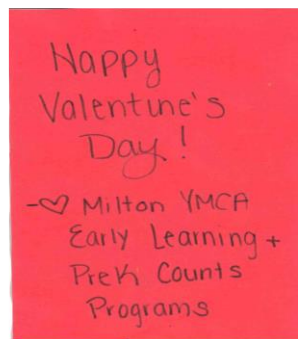 Happy
Valentine's
Day!
-♡ Milton YMCA
Early Learning +
PreK Counts
Programs